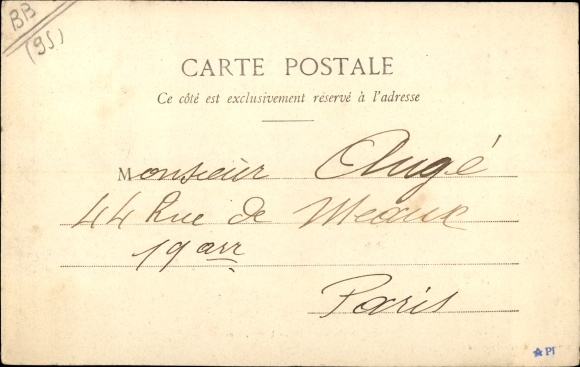 BB
(95)
CARTE POSTALE
Ce côté est exclusivement réservé à l'adresse
Monsieur Augé
44 Rue de Meaux
19 arr
Paris
PI